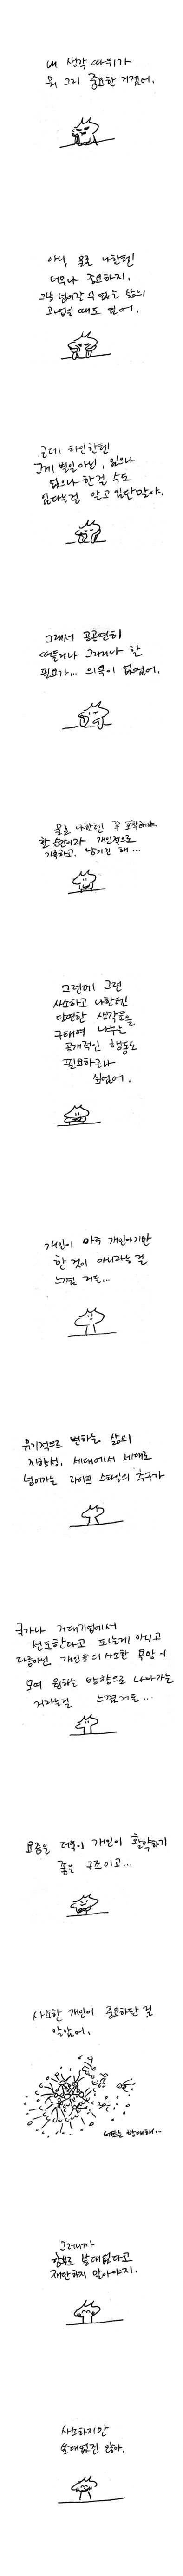 내 생각 따위가
뭐 그리 중요한 거겠어.
아니, 물론 나한텐
너무나 중요하지.
그냥 넘어갈 수 없는 삶의
과업일 때도 있어.
근데 타인한텐
그게 별일 아닌, 있으나
없으나 한 걸 수도
있다는 걸 알고 있단 말야.
그래서 공공연히
떠들거나 그러거나 할
필요가... 의욕이 없었어.
물론 나한텐 꼭 포착해야
할 순간이라 개인적으로
기록하고. 남기긴 해...
그런데 그런
사소하고 나한텐
당연한 생각들을
구태여 나누는
공개적인 행동도
필요하구나
싶었어.
개인이 아주 개인이기만
한 것이 아니라는 걸
느꼈거든...
유기적으로 변하는 삶의
지향성, 세대에서 세대로
넘어가는 라이프 스타일의 추구가
국가나 거대기업에서
선도한다고 되는게 아니고
다름아닌 개인들의 사소한 욕망이
모여 원하는 방향으로 나아가는
거라는걸 느꼈거든...
요즘은 더욱이 개인이 활약하기
좋은 구조이고...
사소한 개인이 중요하단 걸
알았어.
너무는 방대해..
그러니까
함부로 쓸데없다고
재단하지 말아야지.
사소하지만
쓸데없진 않아.